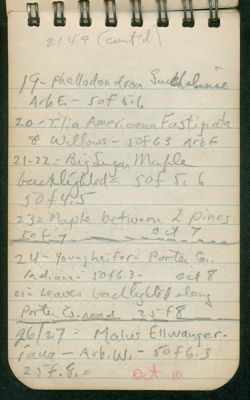 2149 (cont'd)
19 - Phellodendron Sachalinense
Arb E. - 50 f 5.6
20 - Tilia Americana Fastigiata
& Willows - 50 f 6.3 Arb E
21-22 = Big Sugar Maple
backlighted = 50 f 5.6
50 f 4.5
23 = Maple between 2 pines
50 f - 7 Oct 7
24 - Young heifer - Porter Co.,
Indiana - 50 f 6.3 - Oct 8
25 - Leaves backlighted along
Porter Co. road 25 f 8
26/27 = Malus Ellwanger-
iana - Arb. W. - 50 f 6.3
25 f. 8. =
Oct 10